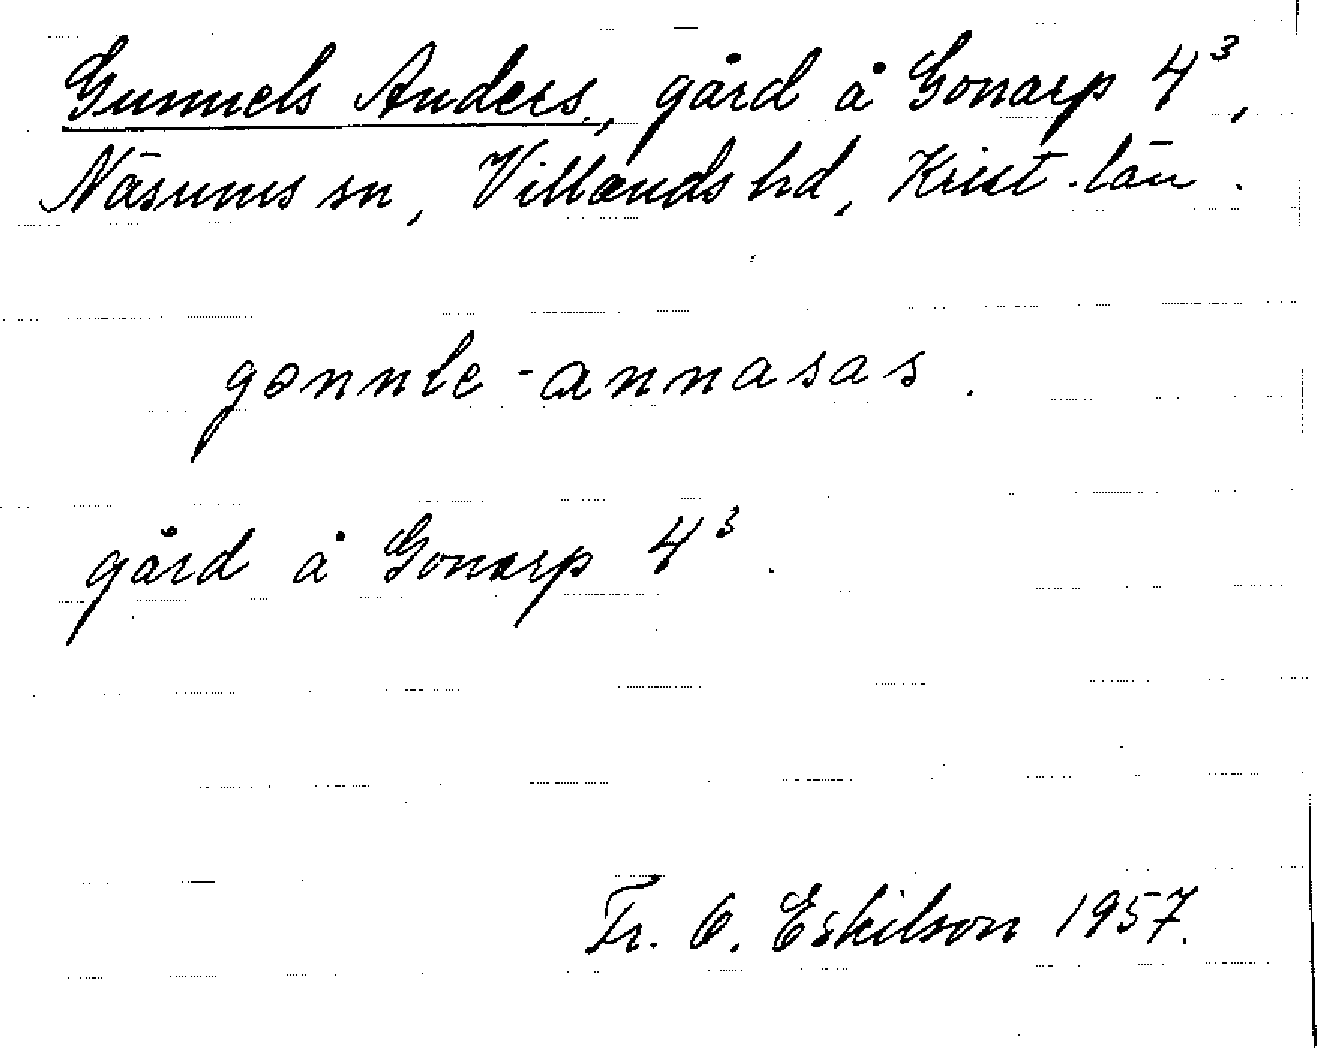 Gunnels Anders, gård å Gonarp 4³,
Näsums sn, Villands hd, Krist. län.
gonnle-annasas.
gård å Gonarp 4³.
Fr. O. Eskilson 1957.